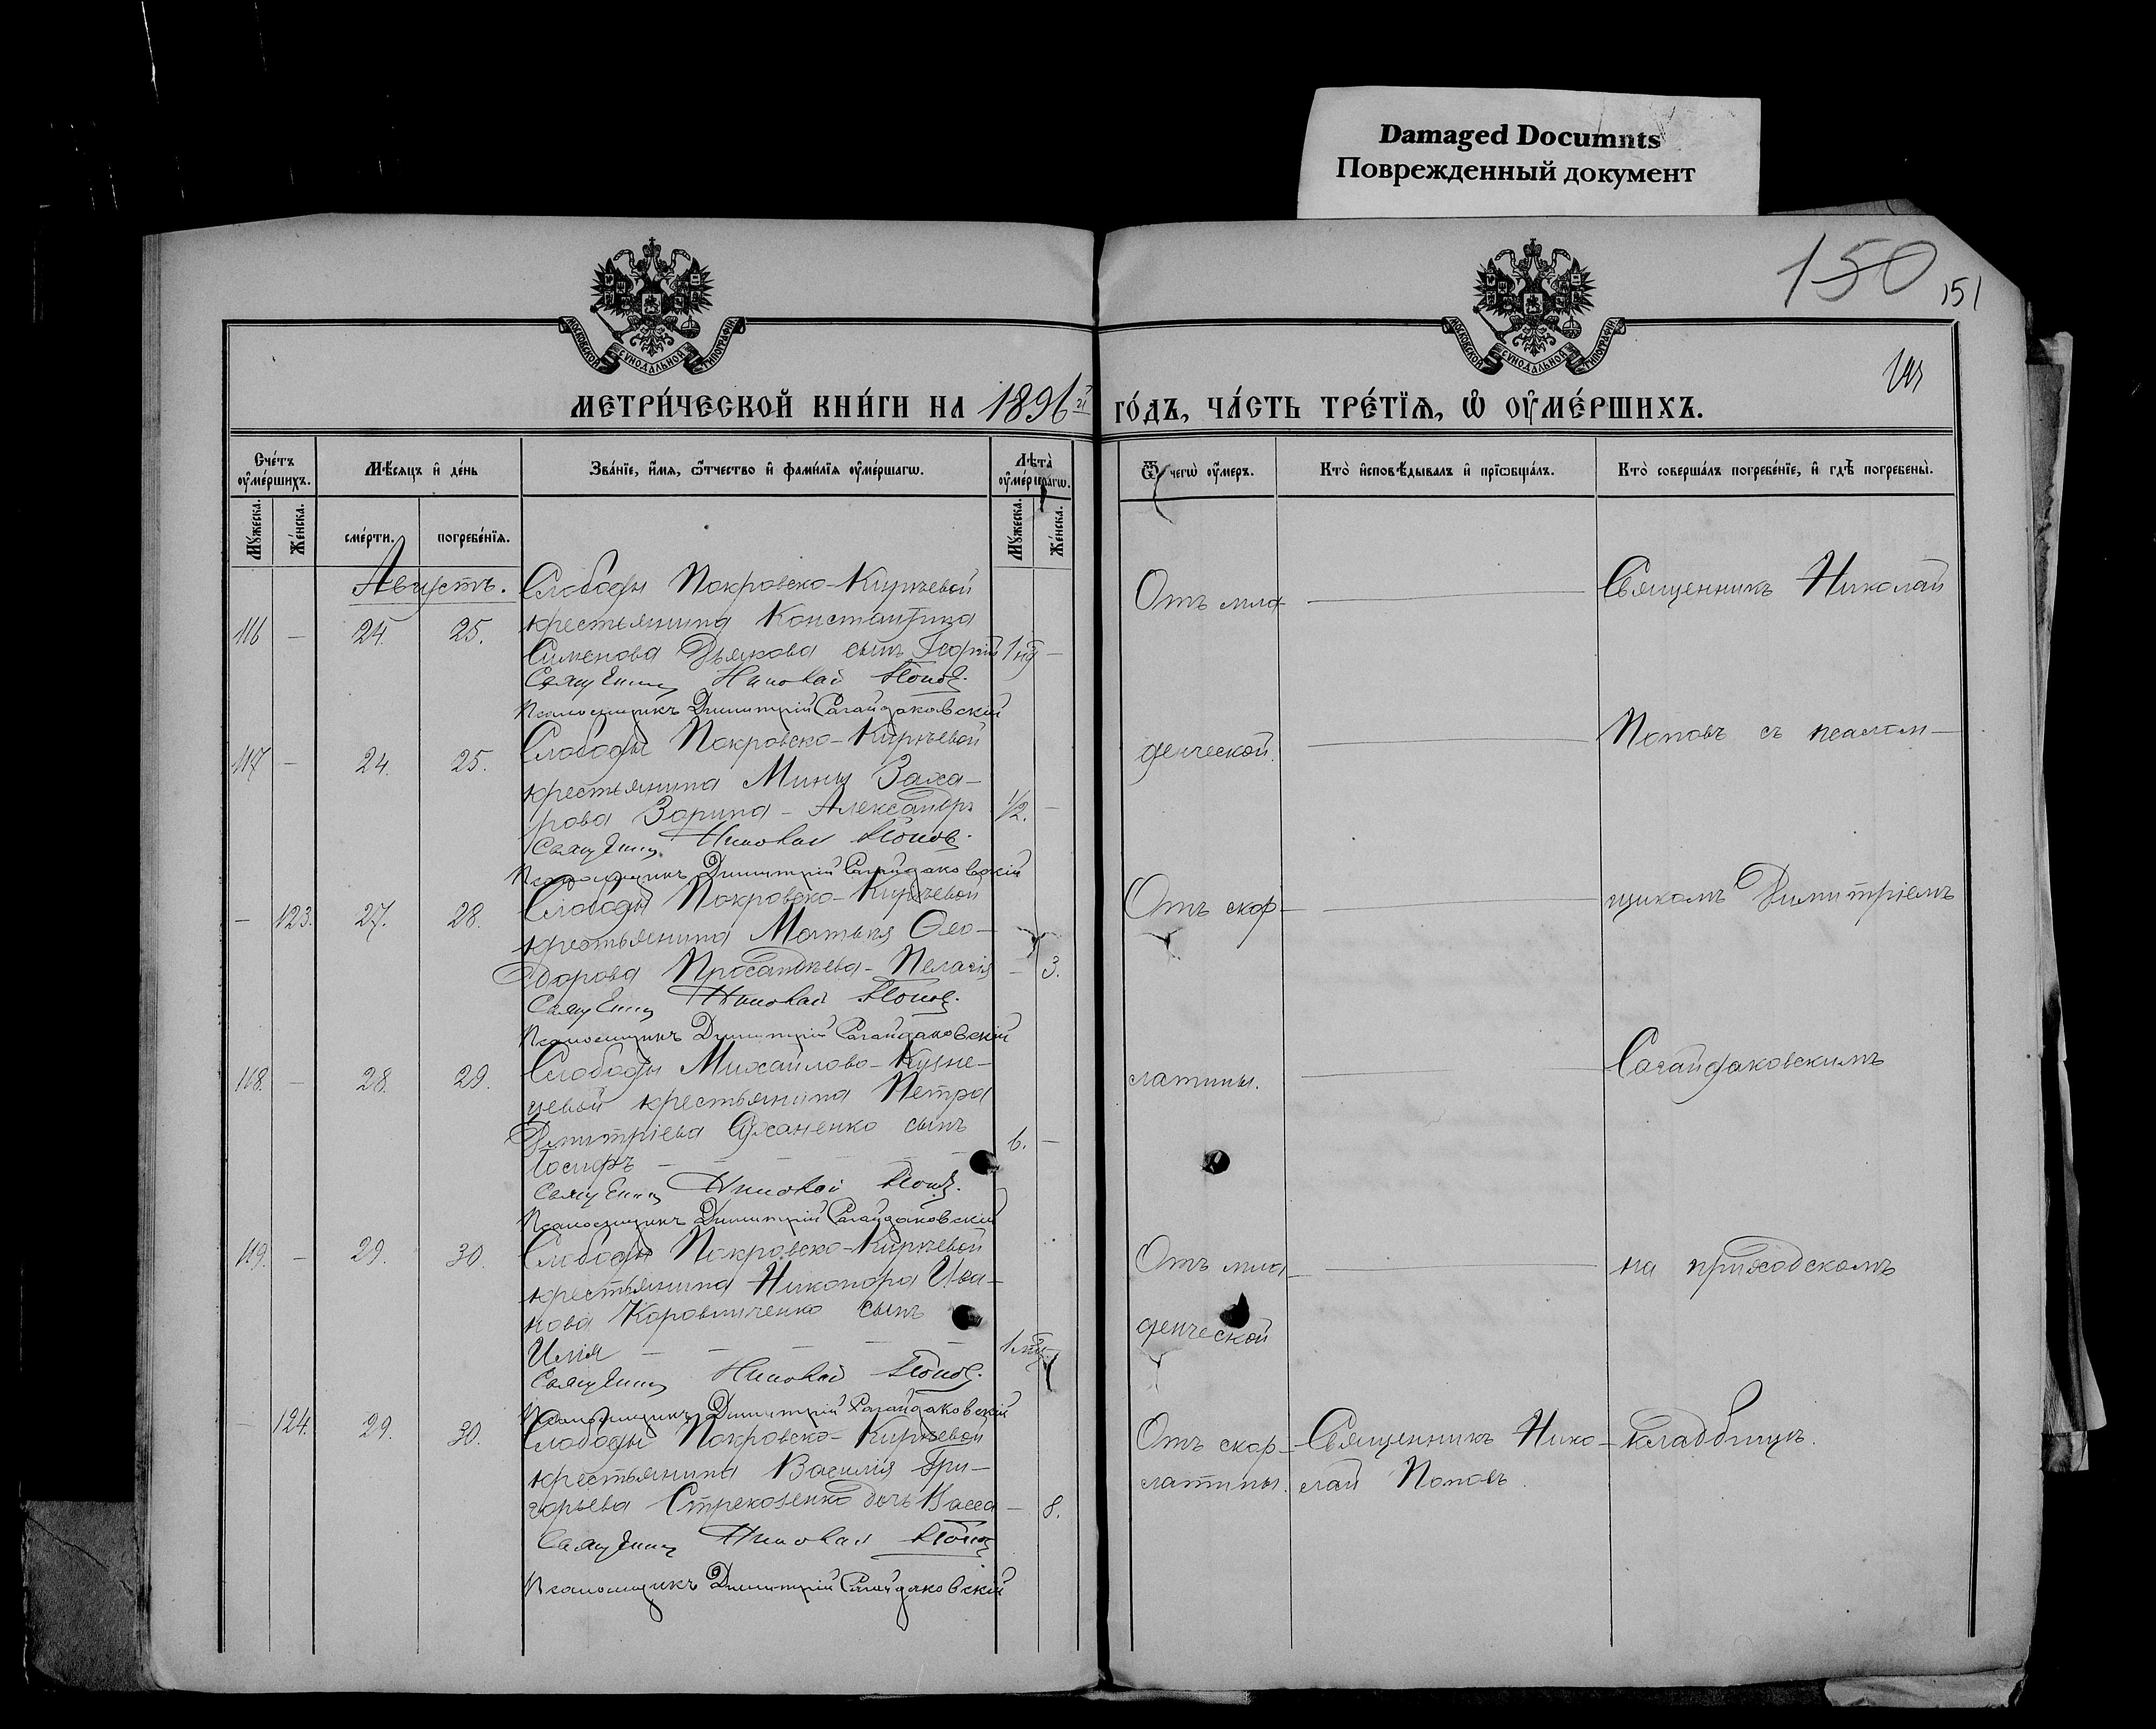 Damaged Documnts
Поврежденный документ
150
151
МОСКОВСКОЙ СѴНОДАЛЬНОЙ ТИПОГРАФІИ
МОСКОВСКОЙ СѴНОДАЛЬНОЙ ТИПОГРАФІИ
МЕТРИ́ЧЕСКОЙ КНИ́ГИ НА 1896 ГО́ДЪ, ЧА́СТЬ ТРЕ́ТЇѦ, Ѡ҆ ОУ҆МЕ́РШИХЪ.
Сче́тъ оу҆ме́ршихъ.
Мѣ́сяцъ и҆ де́нь
Зва́нїе, и҆́мя, ѻ҆́тчество и҆ фами́лїя оу҆ме́ршагѡ.
Лѣта̀ оу҆ме́ршагѡ.
Ѿ чегѡ̀ оу҆́меръ.
Кто̀ и҆сповѣ́дывалъ и҆ прїѡбща́лъ.
Кто̀ соверша́лъ погребе́нїе, и҆ гдѣ̀ погребены̀.
Му́жеска.
Же́нска.
сме́рти.
погребе́нїя.
Му́жеска.
Же́нска.
Августъ.
116 — 24. 25.
Слободы Покровско-Киреевой
крестьянина Константина
Симеонова Дьякова сынъ Георгій 1 нд —
Священникъ Николай Поповъ.
Псаломщикъ Димитрій Сагайдаковскій
Отъ мла-
Священникъ Николай
117 — 24. 25.
Слободы Покровско-Киреевой
крестьянина Мины Заха-
рова Зорина - Александръ 1/2. —
Священникъ Николай Поповъ.
Псаломщикъ Димитрій Сагайдаковскій
денческой.
Поповъ съ псалом-
— 123. 27. 28.
Слободы Покровско-Киреевой
крестьянина Матвея Ѳео-
дорова - Пелагія — 3.
Священникъ Николай Поповъ.
Псаломщикъ Димитрій Сагайдаковскій
Отъ скар-
щикомъ Димитріемъ
118. — 28. 29.
Слободы Михайлово-Кузне-
цевой крестьянина Петра
Димитріева сынъ 6. —
Іосифъ — — — —
Священникъ Николай Поповъ.
Псаломщикъ Димитрій Сагайдаковскій
латины.
Сагайдаковскимъ
119. — 29. 30.
Слободы Покровско-Киреевой
крестьянина Никанора Ива-
нова Коровниченко сынъ
Илія — — — — 1 мѣс.
Священникъ Николай Поповъ.
Псаломщикъ Димитрій Сагайдаковскій
Отъ мла-
денческой
на приходскомъ
— 124. 29. 30.
Слободы Покровско-Киреевой
крестьянина Василія Гри-
горьева Стрекозенко дочь Васса — 8.
Священникъ Николай Поповъ
Псаломщикъ Димитрій Сагайдаковскій
Отъ скар-
латины.
Священникъ Нико-
лай Поповъ.
кладбищѣ.